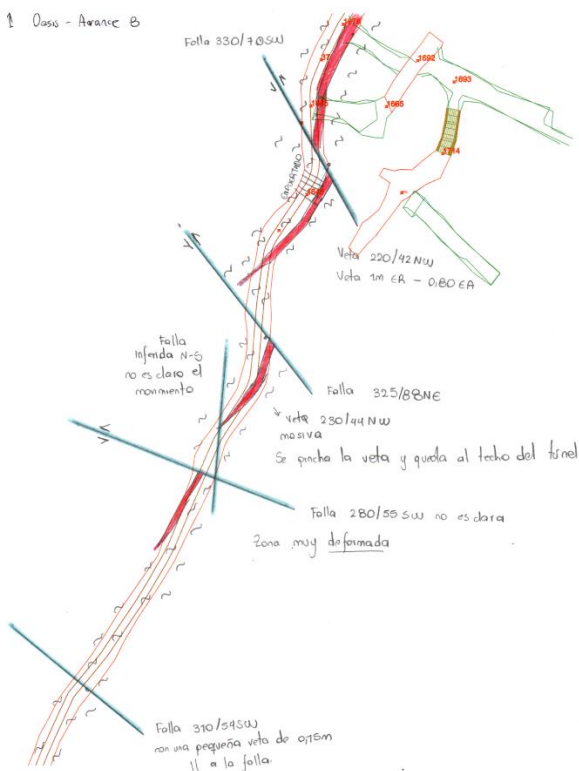 Oasis - Avance B
Falla 330/70SW
1692
1693
1665
1714
ENPUERTADO
Veta 220/42NW
Veta 1m ER - 0,80 EA
Falla
Inferida N-S
no es claro el
movimiento
Falla 325/88NE
veta 230/44NW
masiva
Se pincha la veta y queda al techo del túnel
Falla 280/55 SW no es clara
Zona muy deformada
Falla 310/54SW
con una pequeña veta de 0,15m
11 a la falla.